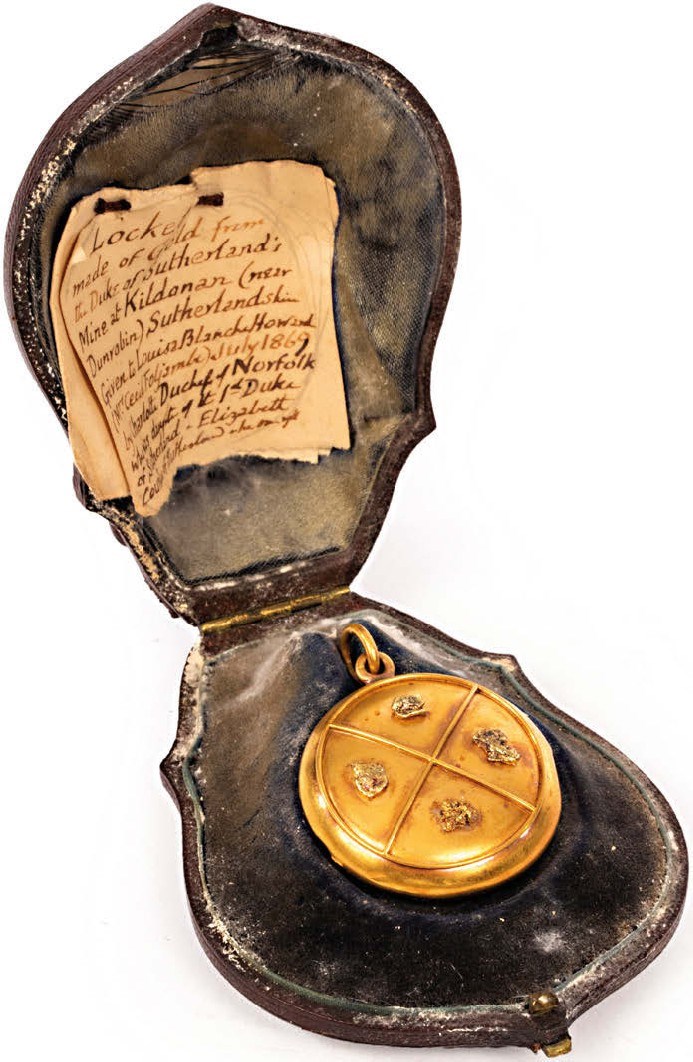 Locket
made of Gold from
the Duke of Sutherland's
Mine at Kildonan (near
Dunrobin) Sutherlandshire
Given to Louisa Blanche Howard
(Mrs Cecil Foljambe) July 1869
by Charlotte Duchess of Norfolk
who was daugtr of the 1st Duke
of Sutherland - Elizabeth
Countess Sutherland